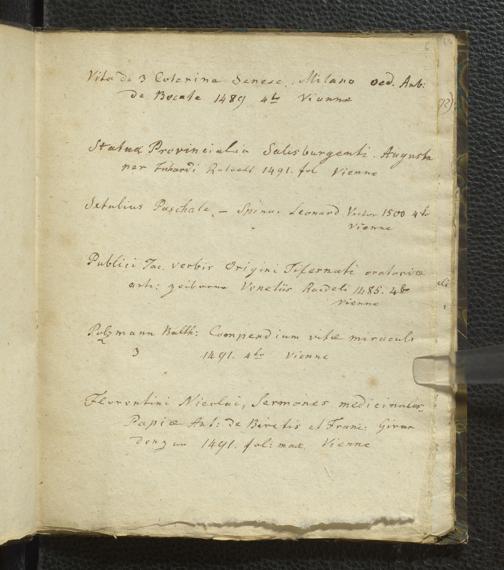 Vita de S Caterina Senese. Milano oed. Ant:
de Bocale 1489 4to Vienne
Statua Provincialia Salisburgenti. Augusta
per Erhardi Ratoelt 1491. fol Vienne
Sedulius Paschale, — Leonard 1500 4to
Vienne
Publici Jac. verbis Origini Tifernati oratoriæ
arti: Venetiis Ratdelt 1485. 4to
Vienne
Polzmann Balth: Compendium vitæ miracul:
S 1491. 4to Vienne
Florentini Nicolai, Sermones medicinales
Papiæ Ant: de Beretis et Franc: Giran
dengus 1491. fol: max. Vienne